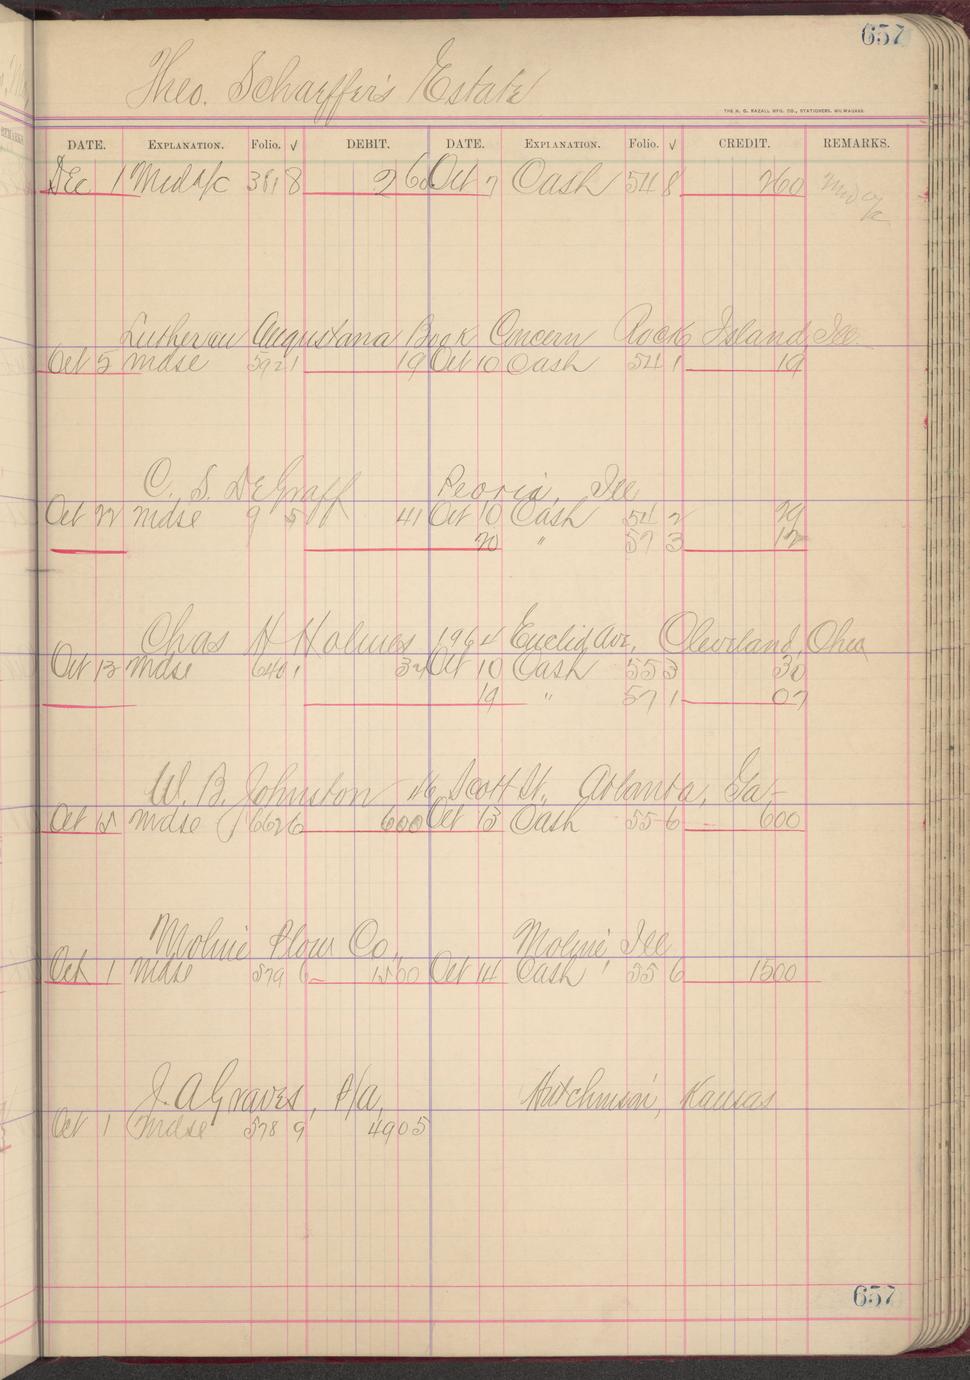 657
Theo. Schaeffer's Estate
THE H. G. RAZALL MFG. CO., STATIONERS, MILWAUKEE.
DATE. EXPLANATION. Folio. √ DEBIT. DATE. EXPLANATION. Folio. √ CREDIT. REMARKS.
Dec 1 Mdse a/c 381 8 2 60 Oct 7 Cash 54 8 260
Lutheran Augustana Book Concern Rock Island Ill.
Oct 5 mdse 592 1 19 Oct 10 Cash 54 1 19
C. S. DeGraff Peoria, Ill
Oct 22 mdse 9 5 41 Oct 10 Cash 54 2 29
20 " 57 3 12
Chas H Holmes 1964 Euclid Ave, Cleveland, Ohio
Oct 13 mdse 640 1 37 Oct 10 Cash 55 3 30
19 " 57 1 07
W. B. Johnston 16 Scott St., Atlanta, Ga-
Oct 15 mdse 662 6 600 Oct 13 Cash 55 6 600
Moline Plow Co., Moline, Ill
Oct 1 mdse 579 6 1500 Oct 14 Cash 55 6 1500
J. A Graves, P/a, Hutchinson, Kansas
Oct 1 mdse 578 9 4905
657